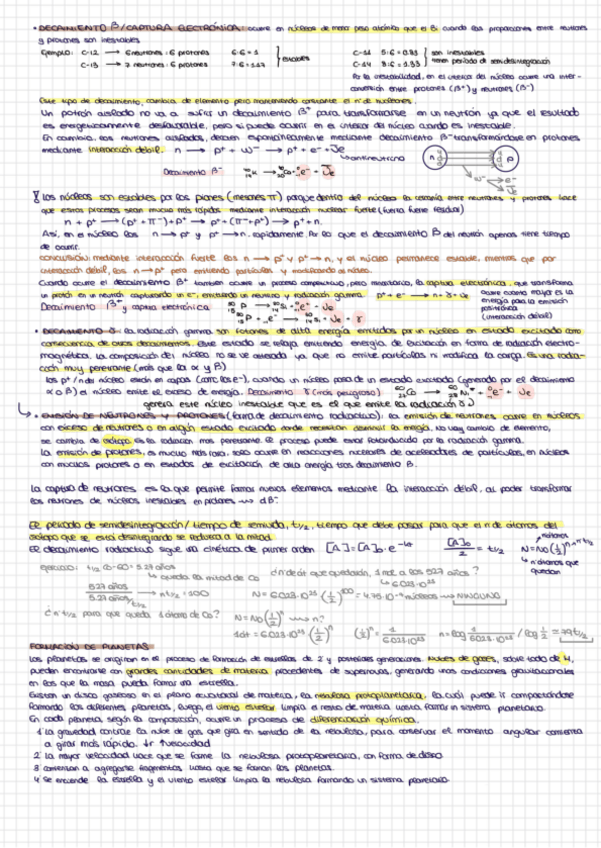 • DECAIMIENTO β/CAPTURA ELECTRÓNICA: ocurre en núcleos de menor peso atómico que el Bi cuando las proporciones entre neutrones
y protones son inestables
Ejemplo: C-12 → 6 neutrones : 6 protones 6:6 = 1 C-11 5:6 = 0.83 son inestables
C-13 → 7 neutrones : 6 protones 7:6 = 1.17 estables C-14 8:6 = 1.33 tienen período de semidesintegración
Por la inestabilidad, en el interior del núcleo ocurre una inter-
conversión entre protones (β+) y neutrones (β-)
Este tipo de decaimiento, cambia de elemento pero manteniendo constante el nº de nucleones.
Un protón aislado no va a sufrir un decaimiento β+ para transformarse en un neutrón ya que el resultado
es energéticamente desfavorable, pero sí puede ocurrir en el interior del núcleo cuando es inestable.
En cambio, los neutrones aislados, decaen espontáneamente mediante decaimiento β- transformándose en protones
mediante interacción débil. n → p+ + W- → p+ + e- + ν̄e
→ antineutrino
Decaimiento β-
Los núcleos son estables por los piones (mesones π) porque dentro del núcleo la cercanía entre neutrones y protones hace
que estos procesos sean mucho más rápidos mediante interacción nuclear fuerte (fuerza fuerte residual)
n + p+ → (p+ + π-) + p+ → p+ + (π- + p+) → p+ + n.
Así, en el núcleo los n → p+ y p+ → n. rápidamente. Por lo que el decaimiento β del neutrón apenas tiene tiempo
de ocurrir.
CONCLUSIÓN: mediante interacción fuerte los n → p+ y p+ → n, y el núcleo permanece estable, mientras que por
interacción débil, los n → p+ pero emitiendo partículas y modificando el núcleo.
Cuando ocurre el decaimiento β+ también ocurre un proceso competitivo, pero minoritario, la captura electrónica, que transforma
un protón en un neutrón capturando un e-, emitiendo un neutrino y radiación gamma. p+ + e- → n + νe + γ
ocurre cuando mayor es la
energía para la emisión
positrónica
(interacción débil)
Decaimiento β+ y captura electrónica
• DECAIMIENTO γ: la radiación gamma son fotones de alta energía emitidos por un núcleo en estado excitado como
consecuencia de otros decaimientos. Este estado se relaja emitiendo energía de excitación en forma de radiación electro-
magnética. La composición del núcleo no se ve alterada ya que no emite partículas ni modifica la carga. Es una radia-
ción muy penetrante (más que la α y β)
los p+/n del núcleo están en capas (como los e-), cuando un núcleo pasa de un estado excitado (generado por el decaimiento
α o β) el núcleo emite el exceso de energía. Decaimiento γ (más peligroso)
genera este núcleo inestable que es el que emite la radiación γ
• EMISIÓN DE NEUTRONES Y PROTONES (forma de decaimiento radiactivo): la emisión de neutrones ocurre en núcleos
con exceso de neutrones o en algún estado excitado donde necesitan disminuir la energía. No hay cambio de elemento,
se cambia de isótopo. Es la radiación más penetrante. El proceso puede estar fotoinducido por la radiación gamma.
La emisión de protones, es mucho más rara, solo ocurre en reacciones nucleares de aceleradores de partículas, en núcleos
con muchos protones o en estados de excitación de alta energía tras decaimiento β.
La captura de neutrones es la que permite formar nuevos elementos mediante la interacción débil, al poder transformar
los neutrones de núcleos inestables en protones
El período de semidesintegración/ tiempo de semivida, t1/2, tiempo que debe pasar para que el nº de átomos del
isótopo que se está desintegrando se reduzca a la mitad.
El decaimiento radiactivo sigue una cinética de primer orden [A] = [A]0 · e-kt
[A]0/2 = t1/2
N = N0 (1/2)n
nº átomos que
quedan
Ejemplo: t1/2 Co-60 = 5.27 años ¿nº de át que quedarán, 1 mol, a los 527 años?
→ queda la mitad de Co → 6.023·10²³
527 años / 5.27 años/t1/2 → n t1/2 = 100 N = 6.023·10²³ (1/2)100 = 4.75·10-7 núcleos → NINGUNO
¿nº t1/2 para que queda 1 átomo de Co? N = N0 (1/2)n → n?
1 át = 6.023·10²³ (1/2)n (1/2)n = 1/6.023·10²³ n = log 1/6.023·10²³ / log 1/2 = 79 t1/2
FORMACIÓN DE PLANETAS
Los planetas se originan en el proceso de formación de estrellas de 2ª y posteriores generaciones. Nubes de gases, sobre todo de H,
pueden encontrarse con grandes cantidades de materia procedentes de supernovas, generando unas condiciones gravitacionales
en las que la masa pueda formar una estrella.
Existen un disco gaseoso en el plano ecuatorial de materia, la nebulosa protoplanetaria, la cual puede ir compactándose
formando los diferentes planetas, luego, el viento estelar limpia el resto de materia hasta formar un sistema planetario.
En cada planeta, según la composición, ocurre un proceso de diferenciación química.
1 La gravedad contrae la nube de gas que gira en sentido de la nebulosa, para conservar el momento angular comienza
a girar más rápido. ↓r ↑velocidad
2 La mayor velocidad hace que se forme la nebulosa protoplanetaria, con forma de disco
3 comienzan a agregarse fragmentos hasta que se forman los planetas.
4 Se enciende la estrella y el viento estelar limpia la nebulosa formando un sistema planetario.